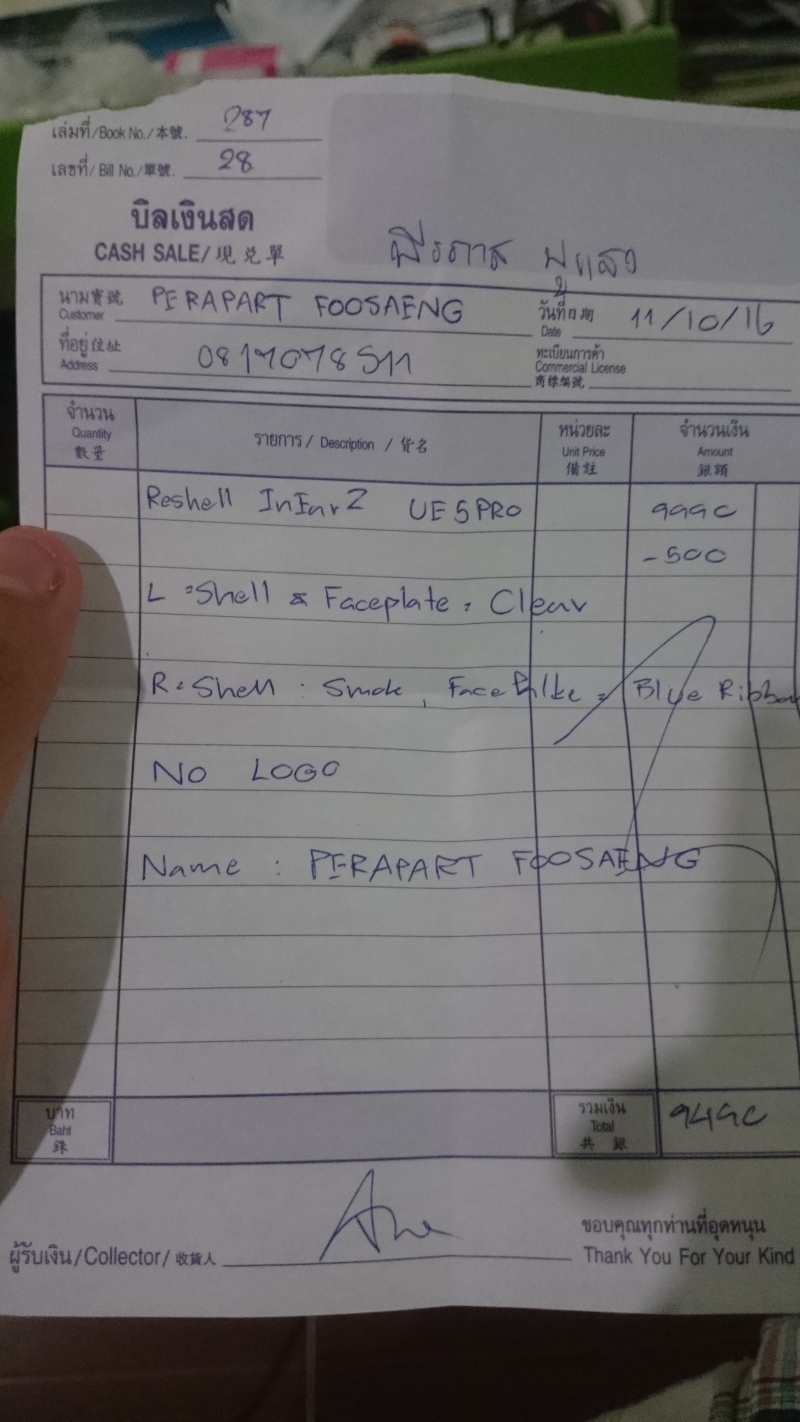 เล่มที่/Book No./本號. 287
เลขที่/Bill No./單號. 28
บิลเงินสด
CASH SALE/現兑單
พีรภาส ฟูแสง
นาม賓號 Customer PERAPART FOOSAENG วันที่日期 Date 11/10/16
ที่อยู่住址 Address 0817078511 ทะเบียนการค้า Commercial License 商標編號
จำนวน Quantity 數量 รายการ / Description / 貨名 หน่วยละ Unit Price 備註 จำนวนเงิน Amount 銀額
Reshell InEar2 UE5PRO 9990
-500
L :Shell & Faceplate : Clear
R:Shell : Smok, Face = Blue Ribbon
NO LOGO
Name : PERAPART FOOSAENG
บาท Baht 銖 รวมเงิน Total 共銀 9490
ผู้รับเงิน/Collector/收貨人
ขอบคุณทุกท่านที่อุดหนุน
Thank You For Your Kind